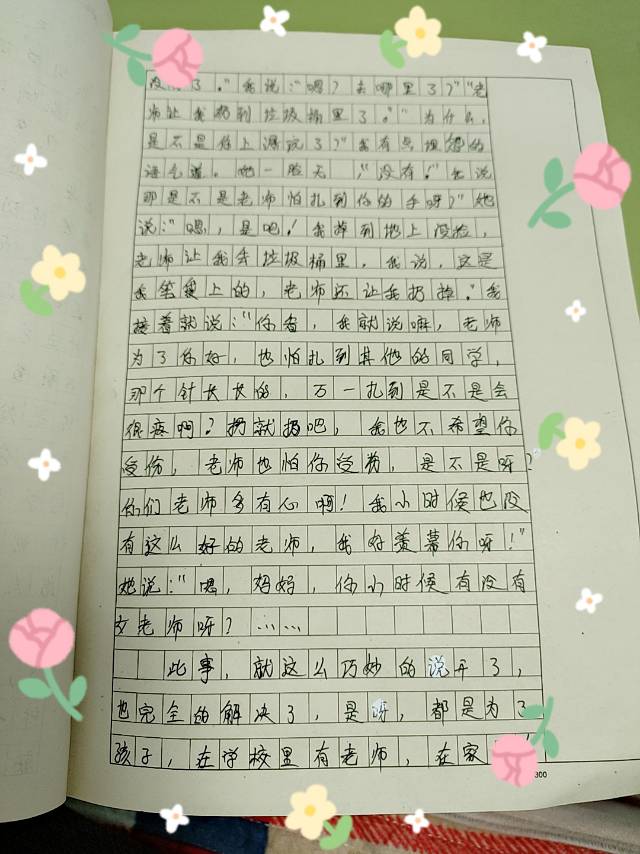 了。"我说:"嗯?去哪里了?""老
师让我扔到垃圾桶里了。""为什么,
是不是你上课玩了?"我有点埋怨的
语气道。她一脸无,"没有!"我说
那是不是老师怕扎到你的手呀?"她
说:"嗯,是吧!我掉到地上没捡,
老师让我丢垃圾桶里,我说,这是
我笔上的,老师还让我扔掉。"我
接着就说:"你看,我就说嘛,老师
为了你好,也怕扎到其他的同学,
那个针长长的,万一扎到是不是会
很疼啊?扔就扔吧,我也不希望你
受伤,老师也怕你受伤,是不是呀?
你们老师多有心啊!我小时候也没
有这么好的老师,我好羡慕你呀!"
她说:"嗯,妈妈,你小时候有没有
女老师呀?……
此事,就这么巧妙的说开了,
也完全的解决了,是呀,都是为了
孩子,在学校里有老师,在家
300